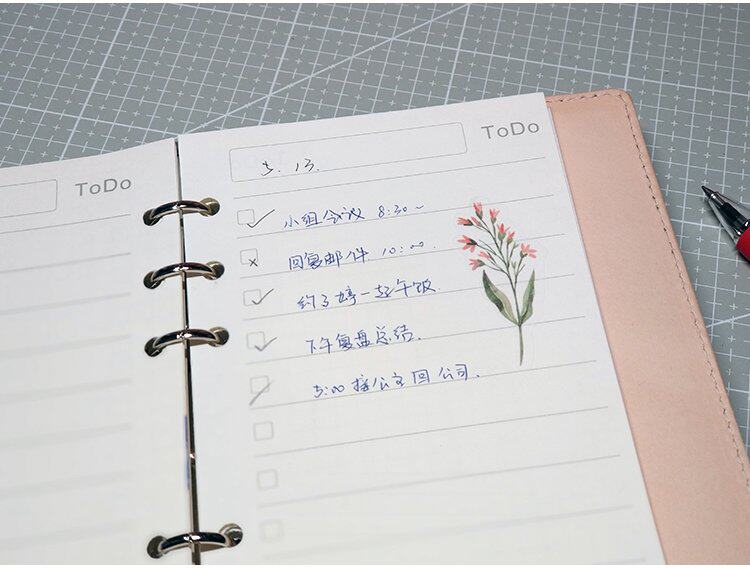 ToDo
ToDo
5.13.
小组会议 8:30~
回复邮件 10:00.
约了婷一起午饭.
下午复盘总结.
5:00 接公文回公司.